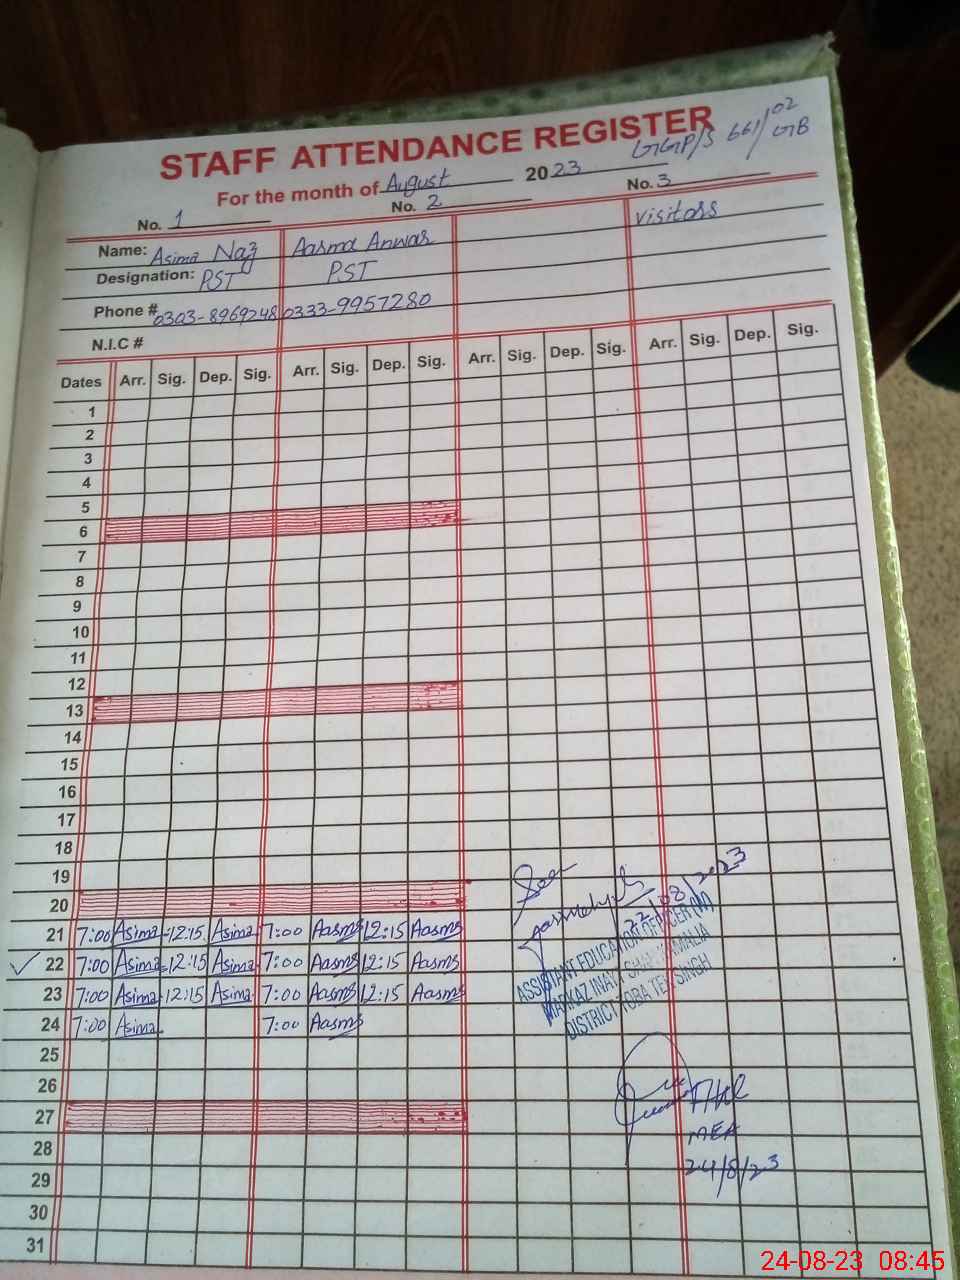 02
GGP/S 661/GB
STAFF ATTENDANCE REGISTER
For the month of August 2023
No. 1 No. 2 No. 3
Name: Asima Naz Aasma Anwar visitors
Designation: PST PST
Phone # 0303-8969248 0333-9957280
N.I.C #
Dates Arr. Sig. Dep. Sig. Arr. Sig. Dep. Sig. Arr. Sig. Dep. Sig. Arr. Sig. Dep. Sig.
1
2
3
4
5
6
7
8
9
10
11
12
13
14
15
16
17
18
19
20
21 7:00 Asima 12:15 Asima 7:00 Aasma 12:15 Aasma
22 7:00 Asima 12:15 Asima 7:00 Aasma 12:15 Aasma
23 7:00 Asima 12:15 Asima 7:00 Aasma 12:15 Aasma
24 7:00 Asima 7:00 Aasma
25
26
27
28
29
30
31
See
22/08/2023
ASSISTANT EDUCATION OFFICER (W)
MARKAZ
DISTRICT TOBA TEK SINGH
MEA
24/8/23
24-08-23 08:45